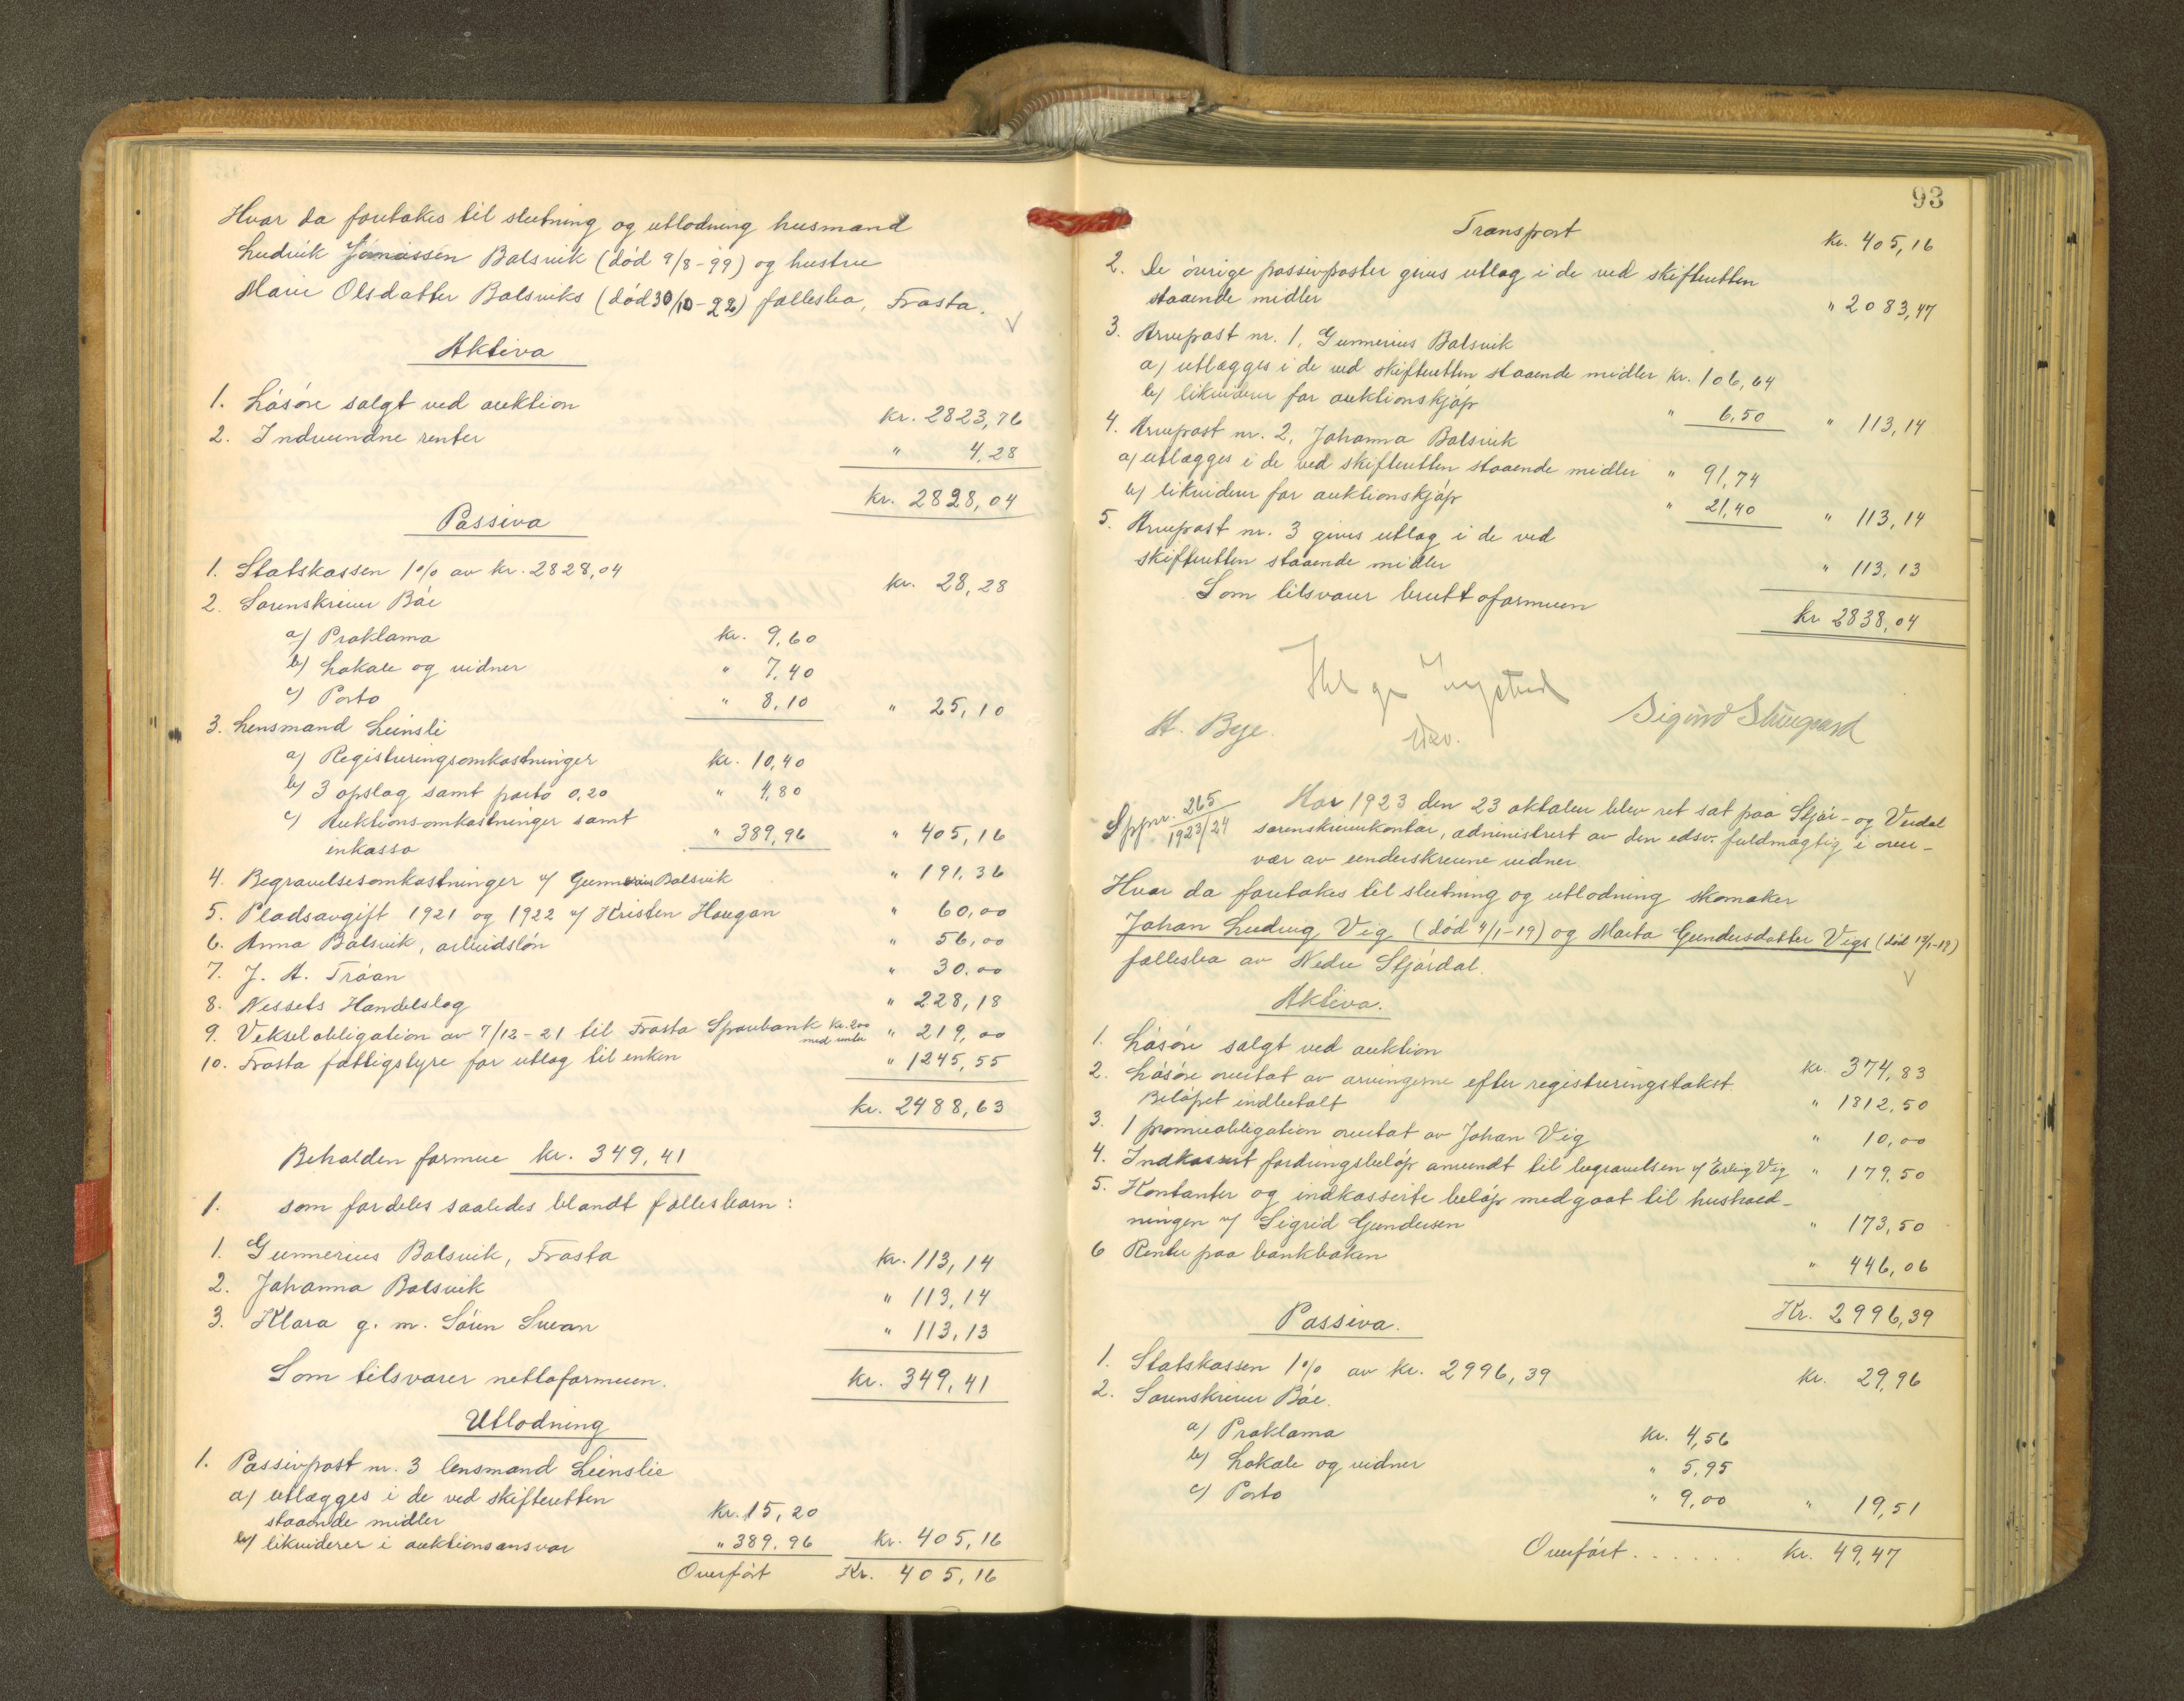 Hvor da foretokes til slutning og utlodning husmand
Ludvik Jonassen Balsvik (död 9/8-99) og hustru
Marie Olsdatter Balsviks (död 30/10-22) fællesbo, Frosta.
Aktiva
1. Lösöre solgt ved auktion kr. 2823,76
2. Indvundne renter " 4,28
kr. 2828,04
Passiva
1. Statskassen 1% av kr. 2828,04 kr. 28,28
2. Sorenskriver Böe
a) Proklama kr. 9,60
b) Lokale og vidner " 7,40
c) Porto " 8,10 " 25,10
3. Lensmand Leinsli
a) Registreringsomkostninger kr. 10,40
b) 3 opslag samt porto 0,20 " 4,80
c) Auktionsomkostninger samt
inkasso " 389,96 " 405,16
4. Begravelsesomkostninger v/ Gunnerius Balsvik " 191,36
5. Pladsavgift 1921 og 1922 v/ Kristen Haugan " 60,00
6. Anna Balsvik, arbeidslön " 56,00
7. J. A. Tröan " 30,00
8. Nessets Handelslag " 228,18
9. Vekselobligation av 7/12-21 til Frosta Sparebank kr. 200 " 219,00
med renter
10. Frosta fattigstyre for utlæg til enken " 1245,55
kr. 2488,63
Beholden formue kr. 349,41
1. som fordeles saaledes blandt fællesbarn:
1. Gunnerius Balsvik, Frosta kr. 113,14
2. Johanna Balsvik " 113,14
3. Klara g. m. Sören Svean " 113,13
Som tilsvarer nettoformuen. kr. 349,41
Utlodning
1. Passivpost nr. 3 lensmand Leinslie
a) utlægges i de ved skifteretten
staaende midler kr. 15,20
b) likviderer i auktionsansvar " 389,96 kr. 405,16
Overfört Kr. 405,16
93
Transport kr. 405,16
2. De övrige passivposter gives utlæg i de ved skifteretten
staaende midler " 2083,47
3. Arvepost nr. 1, Gunnerius Balsvik
a) utlægges i de ved skifteretten staaende midler kr. 106,64
b) likviderer for auktionskjöp " 6,50 " 113,14
4. Arvepost nr. 2, Johanna Balsvik
a) utlægges i de ved skifteretten staaende midler " 91,74
b) likviderer for auktionskjöp " 21,40 " 113,14
5. Arvepost nr. 3 gives utlæg i de ved
skifteretten staaende midler " 113,13
Som tilsvarer bruttoformuen kr 2838,04
Helge Ingstad
A. Bye. Sigurd
Sppr. 265
1923/24
Aar 1923 den 23 oktober blev ret sat paa Stjör- og Verdal
sorenskriverkontor, administrert av den edsv. fuldmægtig i over-
vær av underskrevne vidner.
Hvor da foretokes til slutning og utlodning skomaker
Johan Ludvig Vig (död 4/1-19) og Marta Gundersdatter Vigs (död 13/1-19)
fællesbo av Nedre Stjördal.
Aktiva.
1. Lösöre solgt ved auktion kr. 374,83
2. Lösöre overtat av arvingerne efter registreringstakst
Belöpet indbetalt " 1812,50
3. 1 premieobligation overtat av Johan Vig " 10,00
4. Indkassert fordringsbelöp anvendt til begravelsen v/ Erling Vig " 179,50
5. Kontanter og indkasserte belöp medgaat til hushold-
ningen v/ Sigrid Gundersen " 173,50
6 Renter paa bankboken " 446,06
Kr. 2996,39
Passiva.
1. Statskassen 1% av kr. 2996,39 kr. 29,96
2. Sorenskriver Böe.
a) Proklama kr. 4,56
b) Lokale og vidner " 5,95
c) Porto " 9,00 " 19,51
Overfört . . . . . . kr. 49,47